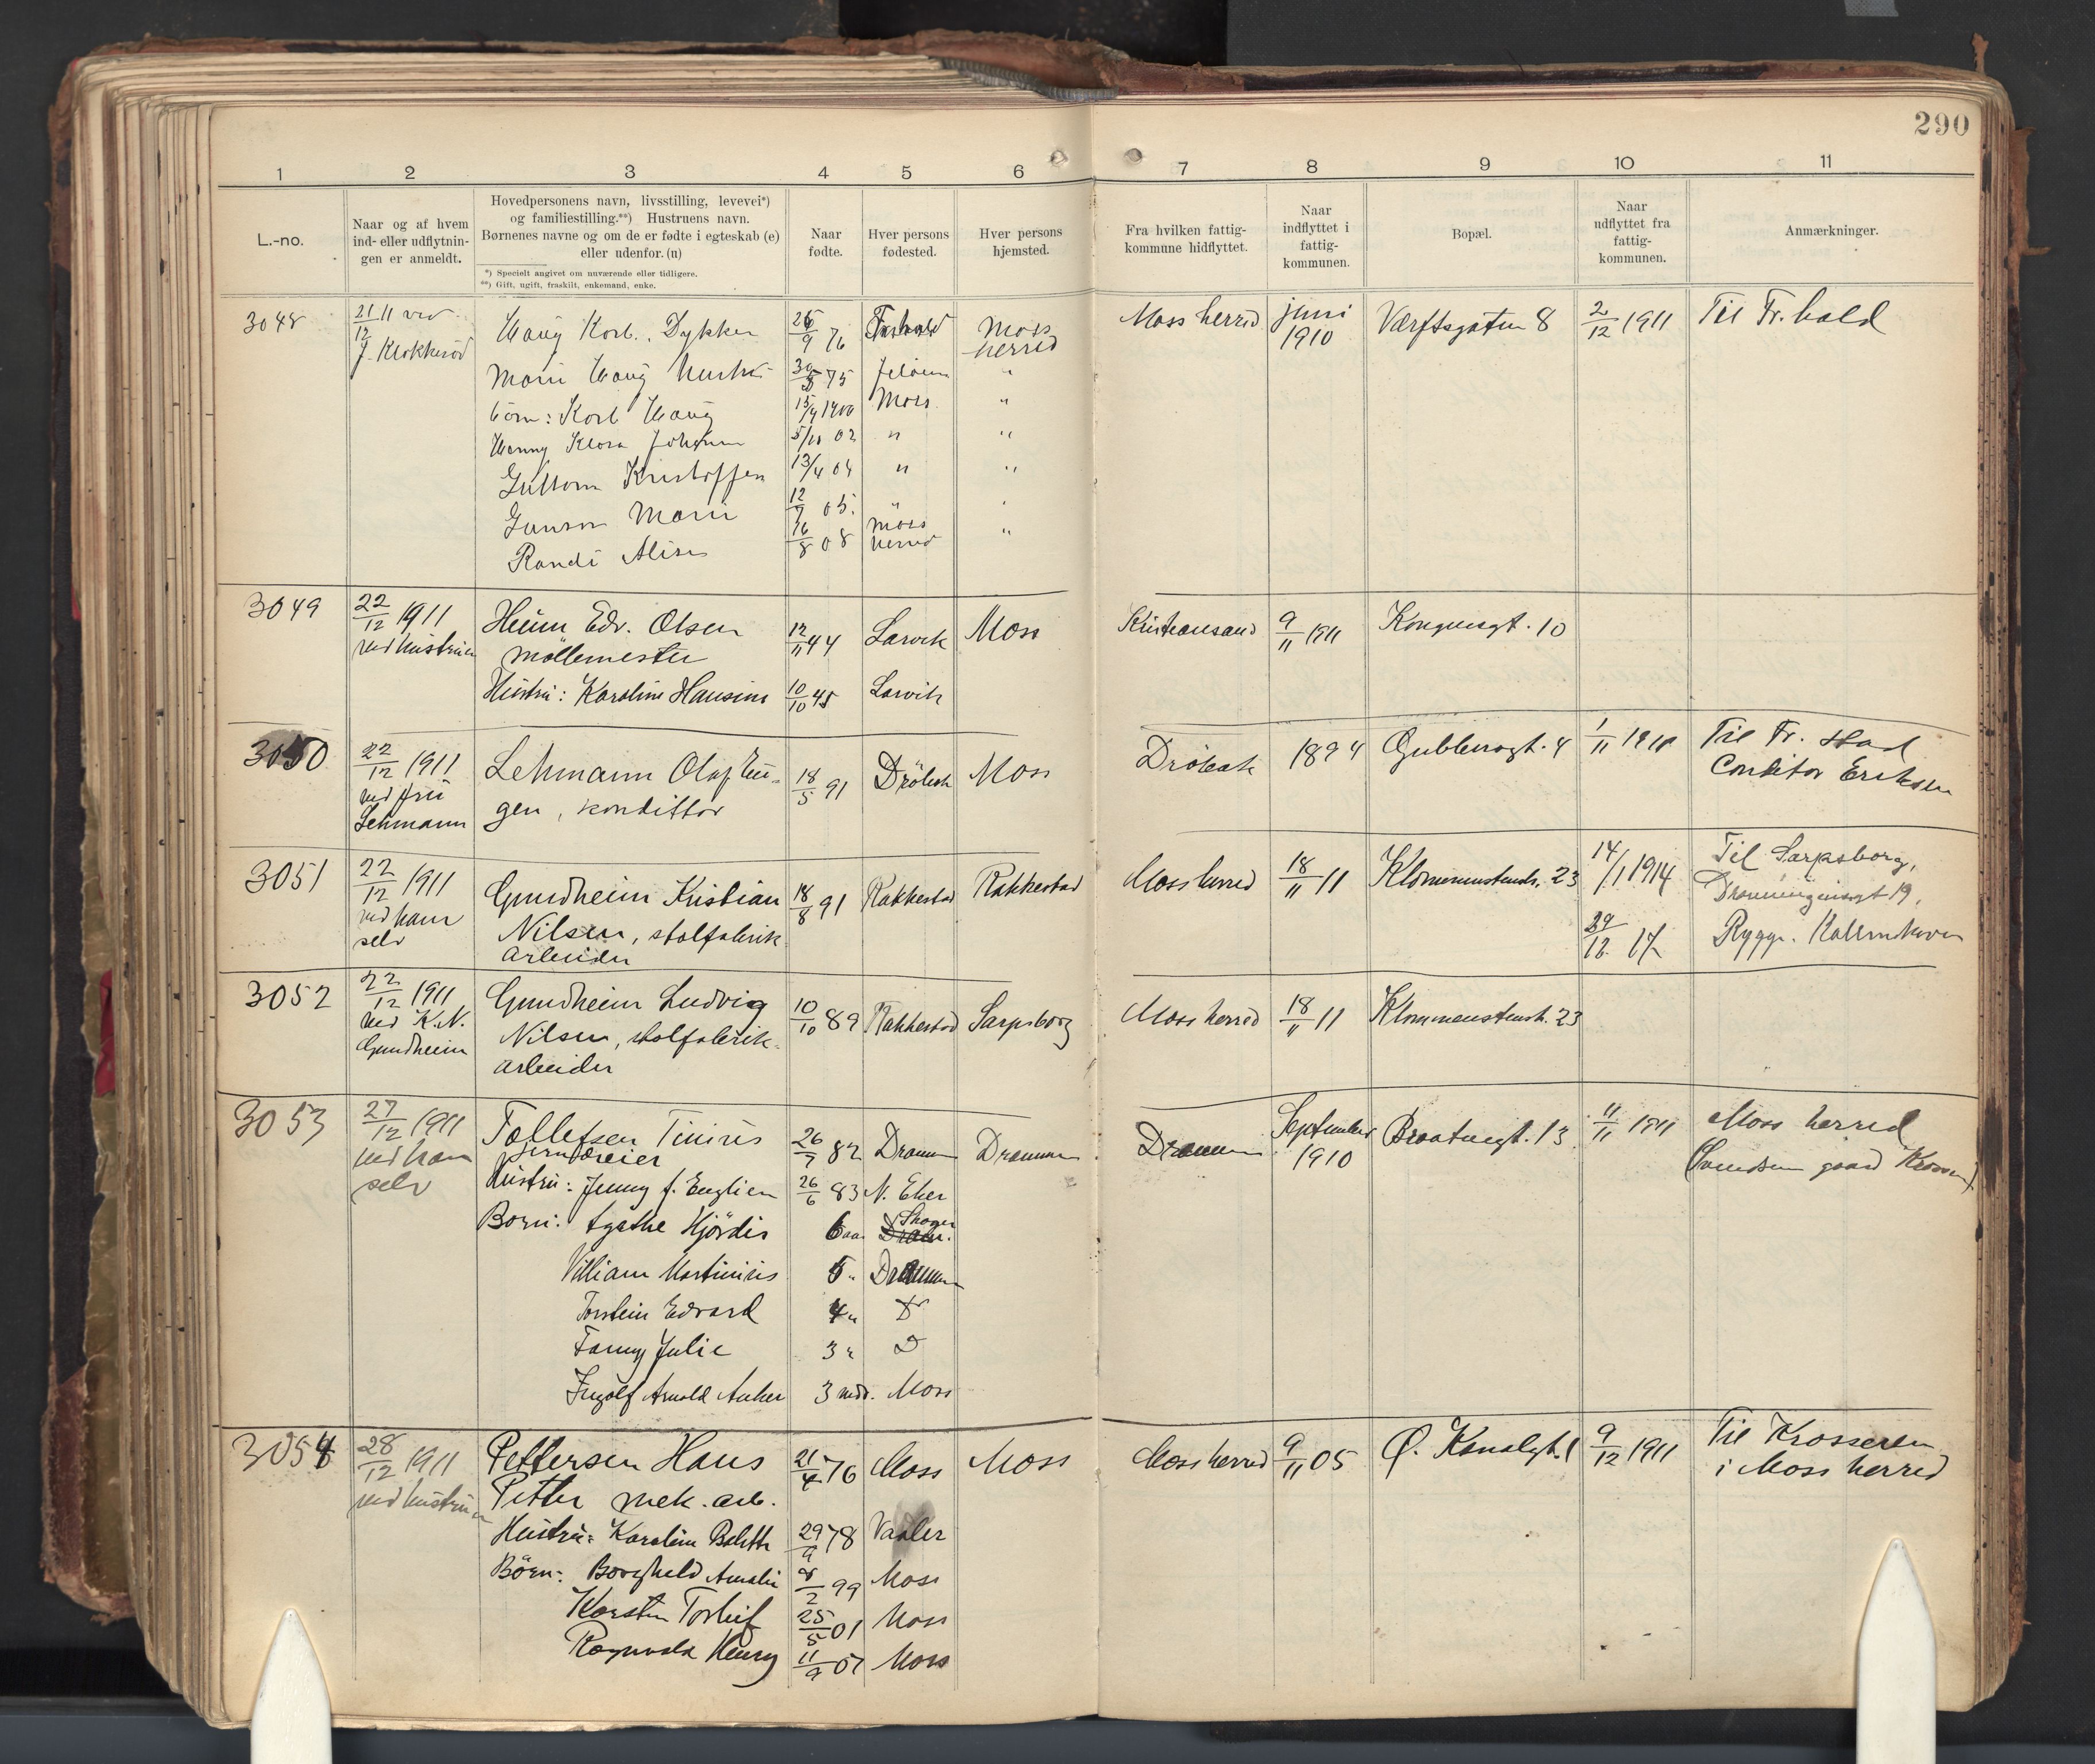 290
1 2 3 4 5 6 7 8 9 10 11
L.-no.
Naar og af hvem
ind- eller udflytnin-
gen er anmeldt.
Hovedpersonens navn, livsstilling, levevei*)
og familiestilling.**) Hustruens navn.
Børnenes navne og om de er fødte i egteskab (e)
eller udenfor. (u)
*) Specielt angivet om nuværende eller tidligere.
**) Gift, ugift, fraskilt, enkemand, enke.
Naar
fødte.
Hver persons
fødested.
Hver persons
hjemsted.
Fra hvilken fattig-
kommune hidflyttet.
Naar
indflyttet i
fattig-
kommunen.
Bopæl.
Naar
udflyttet fra
fattig-
kommunen.
Anmærkninger.
3048 21/12 11 ved Haug Karl. Dykker 9 76 Moss Moss herred juni Værftsgaten 8 2/12 1911 Til Fr.hald
J. Klokkerød herred 1910
Marie Haug Hustru 75 Jeløen "
børn: Karl Haug 15/4 1900 Moss "
Klara 5/10 02 " "
Guttorm Kristoffer 13/4 04 " "
Marie 12/9 05. "
Randi 16/8 08 Moss herred "
3049 22/12 1911 Olsen 12/11 44 Larvik Moss Kristiansand 9/11 1911 Kongensgt. 10
ved hustruen møllemester
Hustru: Karoline Hansine 10/10 45 Larvik
3050 22/12 1911 Lehmann Olaf Eu- 18/5 91 Drøbak Moss Drøbak 1894 4 1/11 1910 Til Fr. stad
ved fru gen, konditor Conditor Eriksen
Lehmann
3051 22/12 1911 Gundheim Kristian 18/8 91 Rakkestad Rakkestad Moss herred 18/11 11 23 14/1 1914 Til Sarpsborg,
ved ham Nilsen, stolfabrik- Dronningensgt 19,
selv arbeider 12 17 Rygge.
3052 22/12 1911 Gundheim Ludvig 10/10 89 Rakkestad Sarpsborg Moss herred 18/11 11 23
ved K.N. Nilsen, stolfabrik-
Gundheim arbeider
3053 27/12 1911 Tollefsen Tinius 26/7 82 Dramm Drammen Drammen September 13 11/11 1911 Moss herred
ved ham jerndreier 1910 (Svendsen gaard Krossern)
selv Hustru: Jenny f. Englien 26/6 83 N. Eker
Børn: Agathe Hjördis 6 aar Skoger
Villiam Martinius 5 " Drammen
Torstein Edvard 4 " D
Fanny Julie 3 " D
Ingolf Arnold Anker 3 mdr. Moss
3054 28/12 1911 Pettersen Hans 21/4 76 Moss Moss Moss herred 9/11 05 Ø. Kanalgt. 1 9/12 1911 Til Krosseren
ved hustruen Petter mek. arb. i Moss herred
Hustru: Karoline Bolette 29/9 78 Vaaler
Børn: Borghild Amalie 2 99 Moss
Karsten Torleif 25/5 01 Moss
Ragnvald Henry 11/9 07 Moss